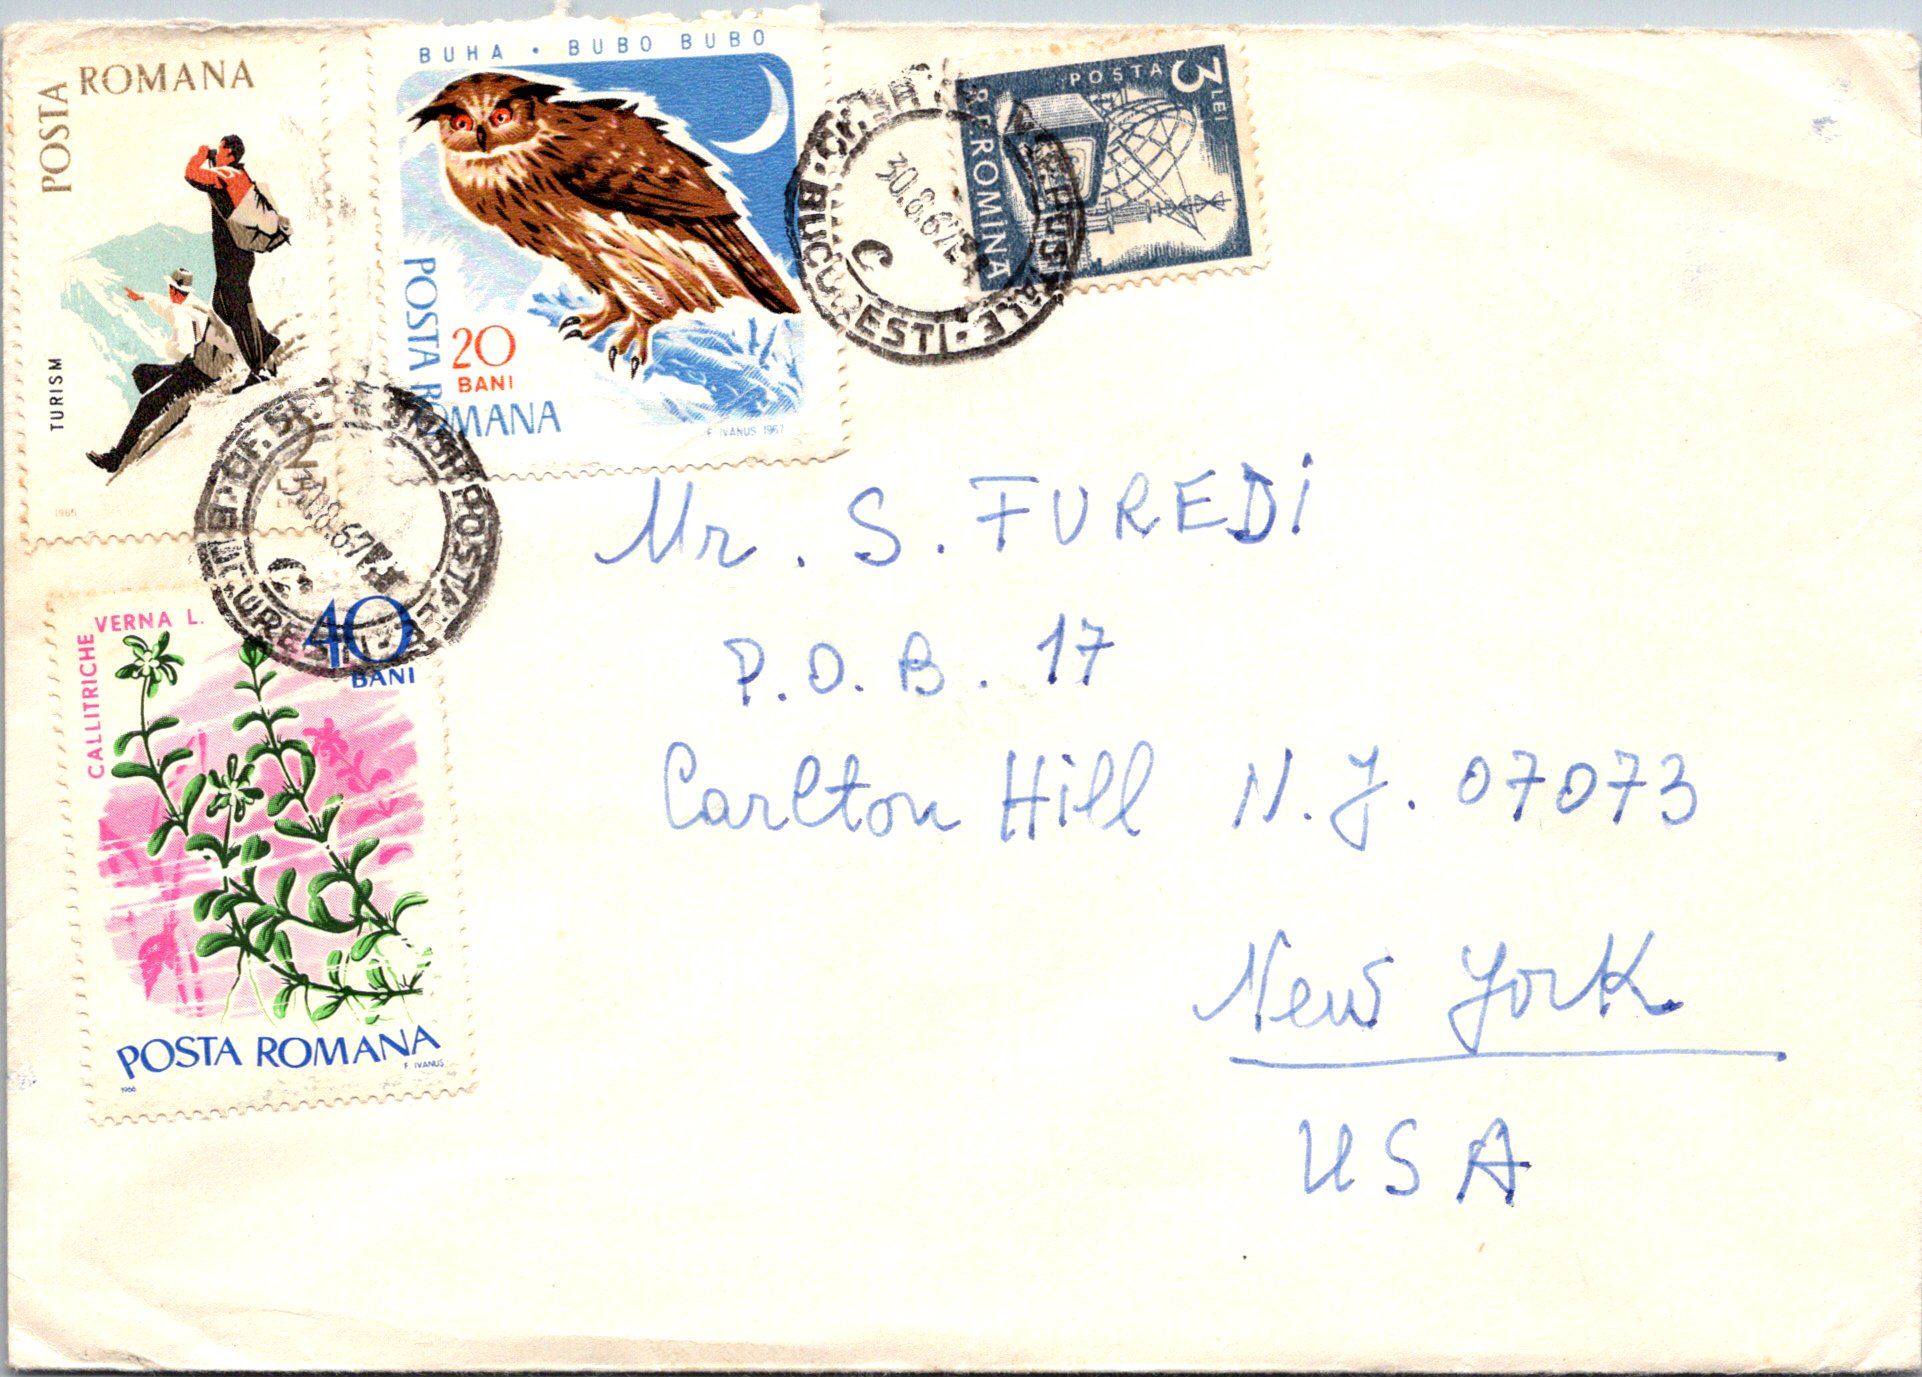 POSTA ROMANA
TURISM
1965
BUHA · BUBO BUBO
20
BANI
POSTA ROMANA
F. IVANUS 1967
POSTA
3 LEI
R.P. ROMINA
30.8.67
C
BUCURESTI
30.8.67
CALLITRICHE VERNA L.
40
BANI
POSTA ROMANA
1966
F. IVANUS
Mr. S. FUREDI
P.O.B. 17
Carlton Hill N.J. 07073
New York
USA